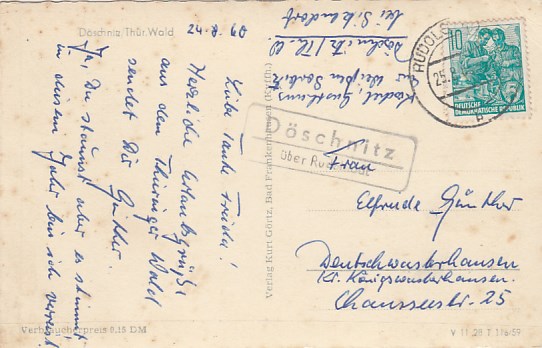 Döschnitz/Thür. Wald
24-8. 60
Liebe Tante Frieda!
Herzliche Urlaubsgrüße
aus dem Thüringer Wald
sendet Dir
Günther.
Ja, Du staunst aber es stimmt
in diesem Jahr bin ich verreist
Verbraucherpreis 0.15 DM
Verlag Kurt Görtz, Bad Frankenhausen (Kyffh.)
Gasthaus
zur Weißen
Döschnitz/Th. W
bei Sitzendorf
Döschnitz
über
RUDOLS
25.
10
DEUTSCHE
DEMOKRATISCHE REPUBLIK
Frau
Elfrude Günther
Deutschwusterhausen
Kr. Königswusterhausen
Chausseestr. 25
V 11 28 T 116 59